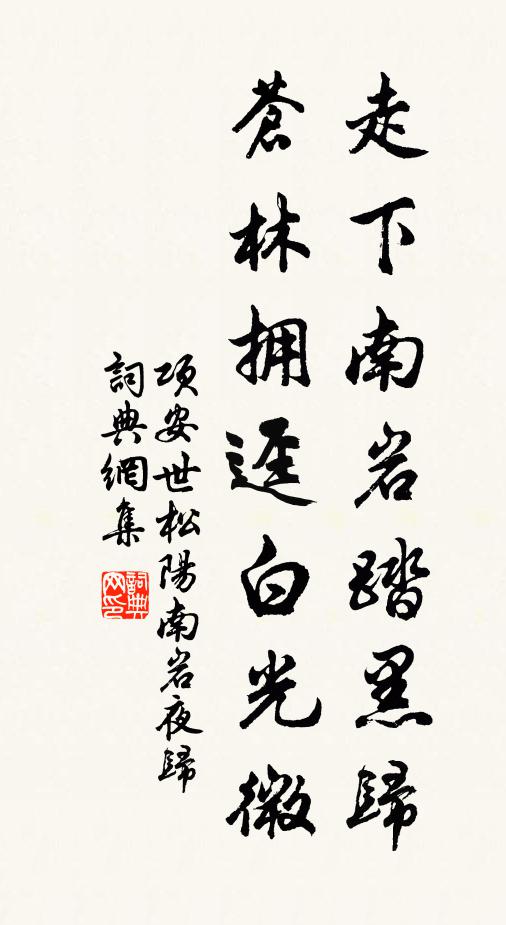 走下南岩踏黑歸
蒼林拥逕白光微
項安世松陽南岩夜歸
詞典網集
詞典网印